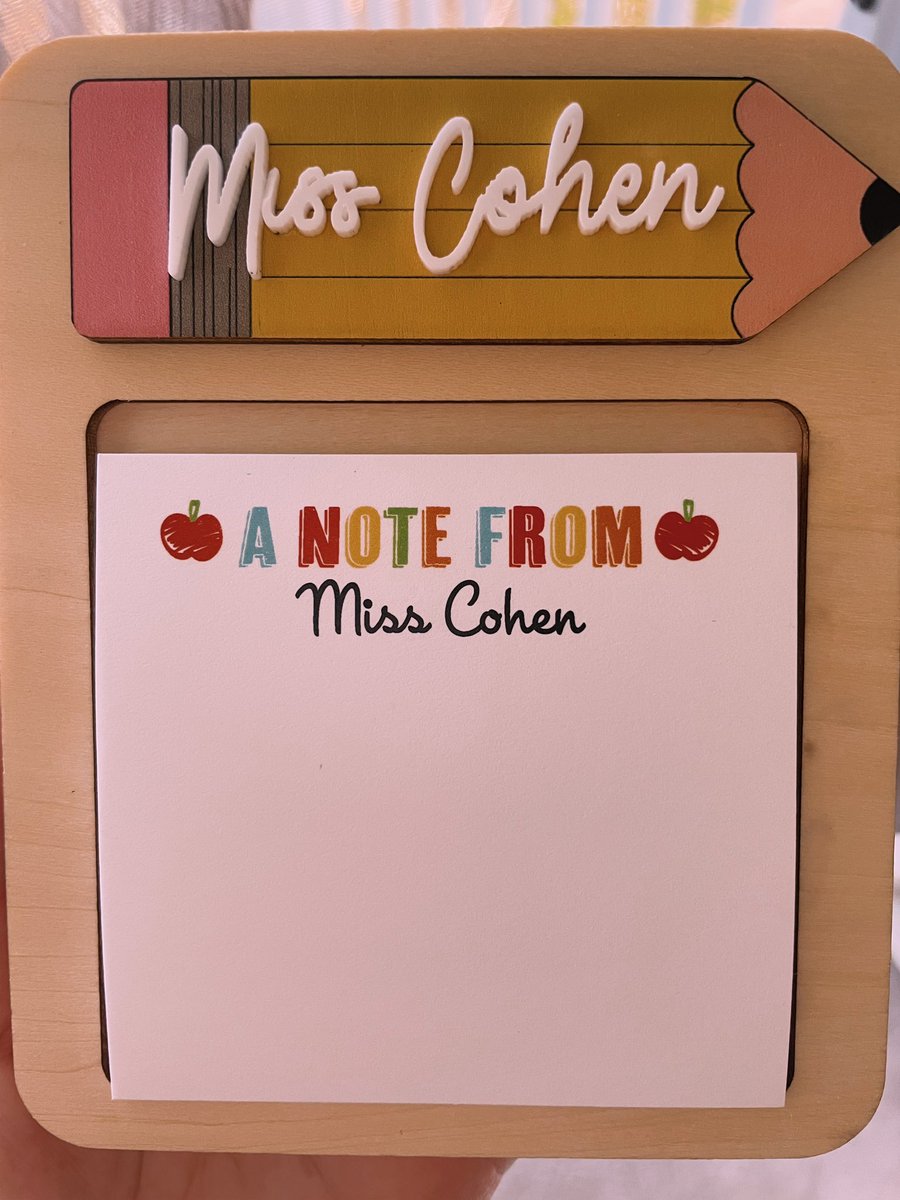 Miss Cohen
A NOTE FROM
Miss Cohen